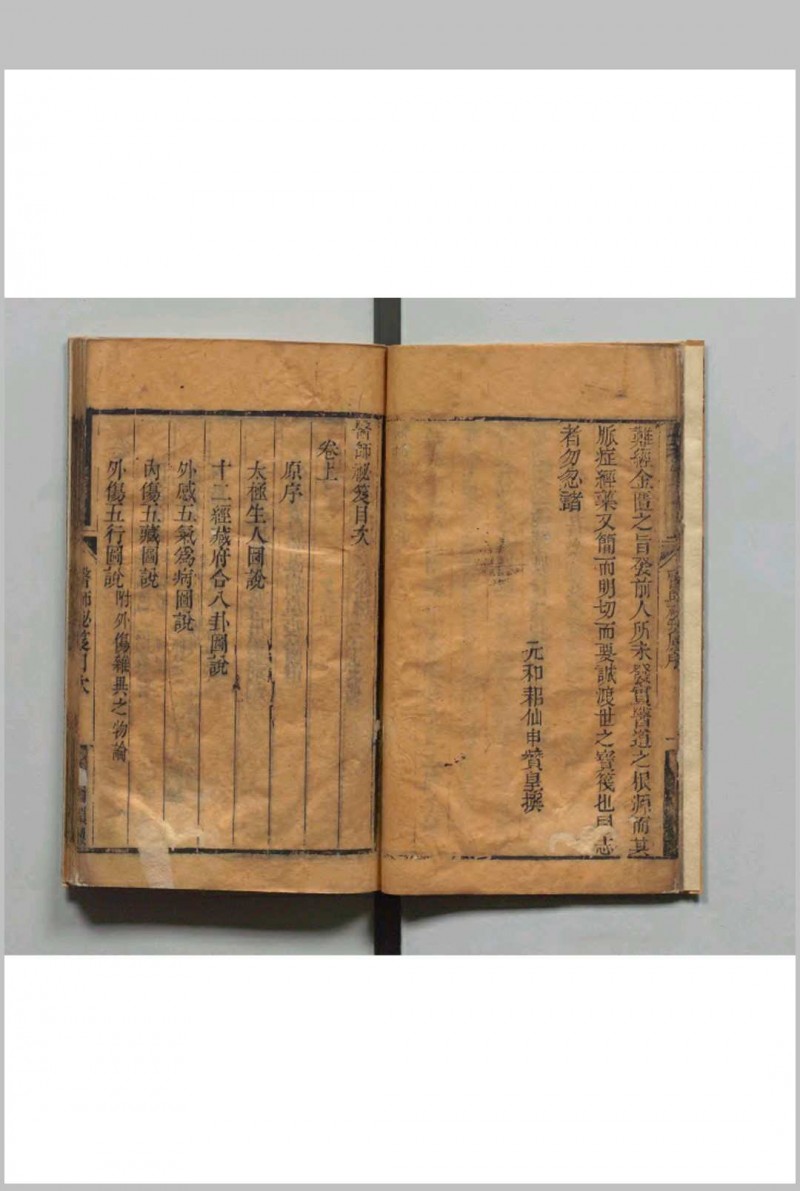 難經金匱之旨發前人所未發實醫道之根源而其
脈症經藥又簡而明切而要誠渡世之寶筏也同志
者勿忽諸
元和耜仙申贊皇撰
醫師秘笈目次
卷上
原序
太極生人圖說
十二經藏府合八卦圖說
外感五氣為病圖說
內傷五藏圖說
外傷五行圖說 附外傷雜異之物論
醫師秘笈目次